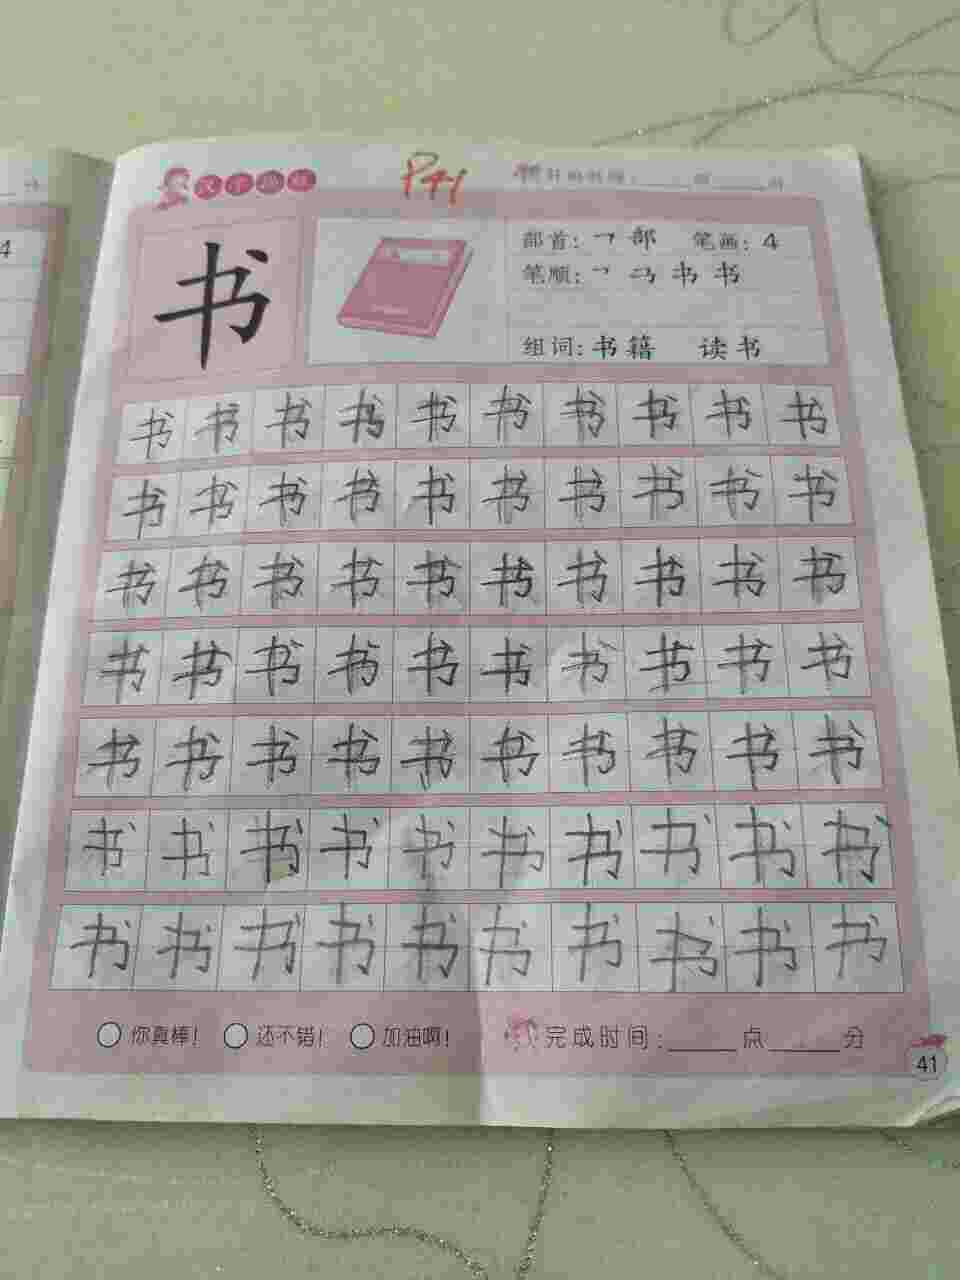 汉字描红 P41 开始时间:____点____分
书 部首:乛部 笔画:4
笔顺:
组词:书籍 读书
书书书书书书书书书书
书书书书书书书书书书
书书书书书书书书书书
书书书书书书书书书书
书书书书书书书书书书
书书书书书书书书书书
书书书书书书书书书书
你真棒! 还不错! 加油啊! 完成时间:____点____分
41